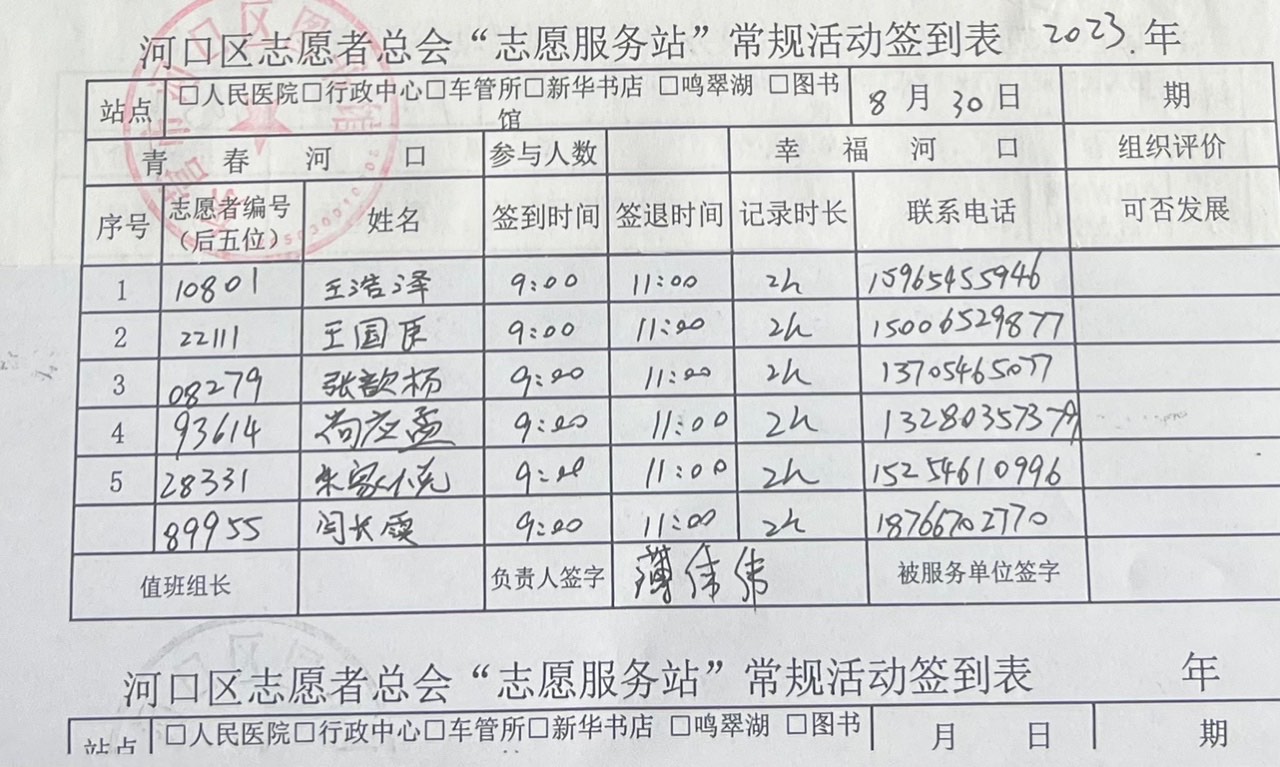 河口区志愿者总会“志愿服务站”常规活动签到表 2023.年
站点 □人民医院□行政中心□车管所□新华书店 □鸣翠湖 □图书馆 8月30日 期
青春河口 参与人数 幸福河口 组织评价
序号 志愿者编号（后五位） 姓名 签到时间 签退时间 记录时长 联系电话 可否发展
1 10801 王浩泽 9:00 11:00 2h 15965455946
2 22111 王国臣 9:00 11:00 2h 15006529877
3 08279 张歆杨 9:00 11:00 2h 13705465077
4 93614 尚应孟 9:00 11:00 2h
5 28331 朱家小克 9:00 11:00 2h 15254610996
89955 闫长霞 9:00 11:00 2h 18766702770
值班组长 负责人签字 薄伟伟 被服务单位签字
河口区志愿者总会“志愿服务站”常规活动签到表 年
站点 □人民医院□行政中心□车管所□新华书店 □鸣翠湖 □图书 月 日 期